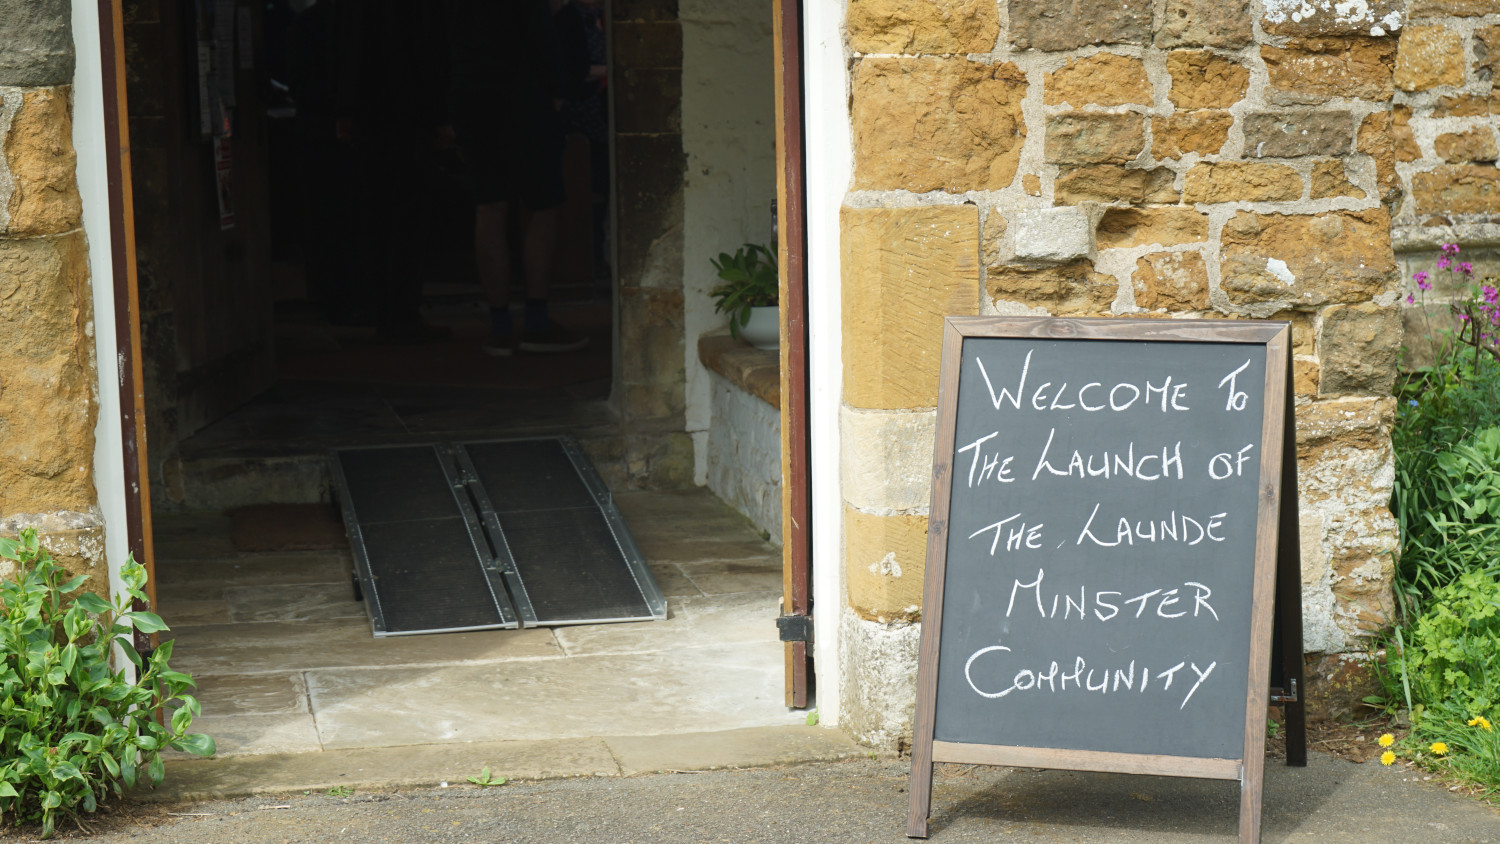 WELCOME TO
THE LAUNCH OF
THE LAUNDE
MINSTER
COMMUNITY